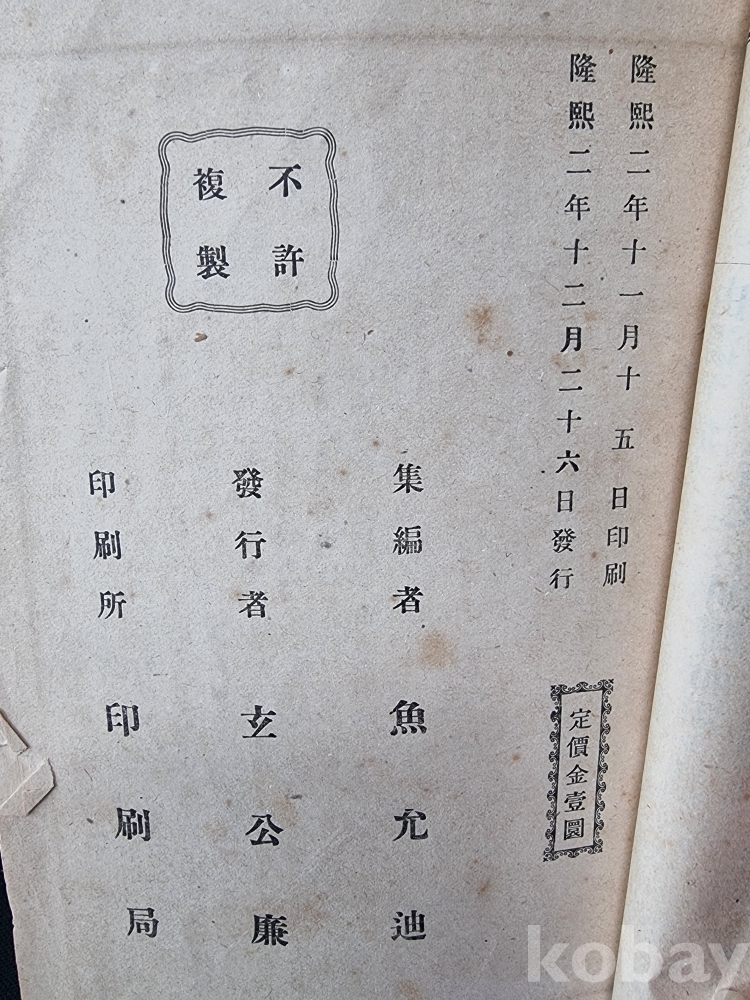 隆熙二年十一月十五日印刷
隆熙二年十二月二十六日發行
定價金壹圜
集編者 魚允迪
發行者 玄公廉
印刷所 印刷局
不許
複製
kobay